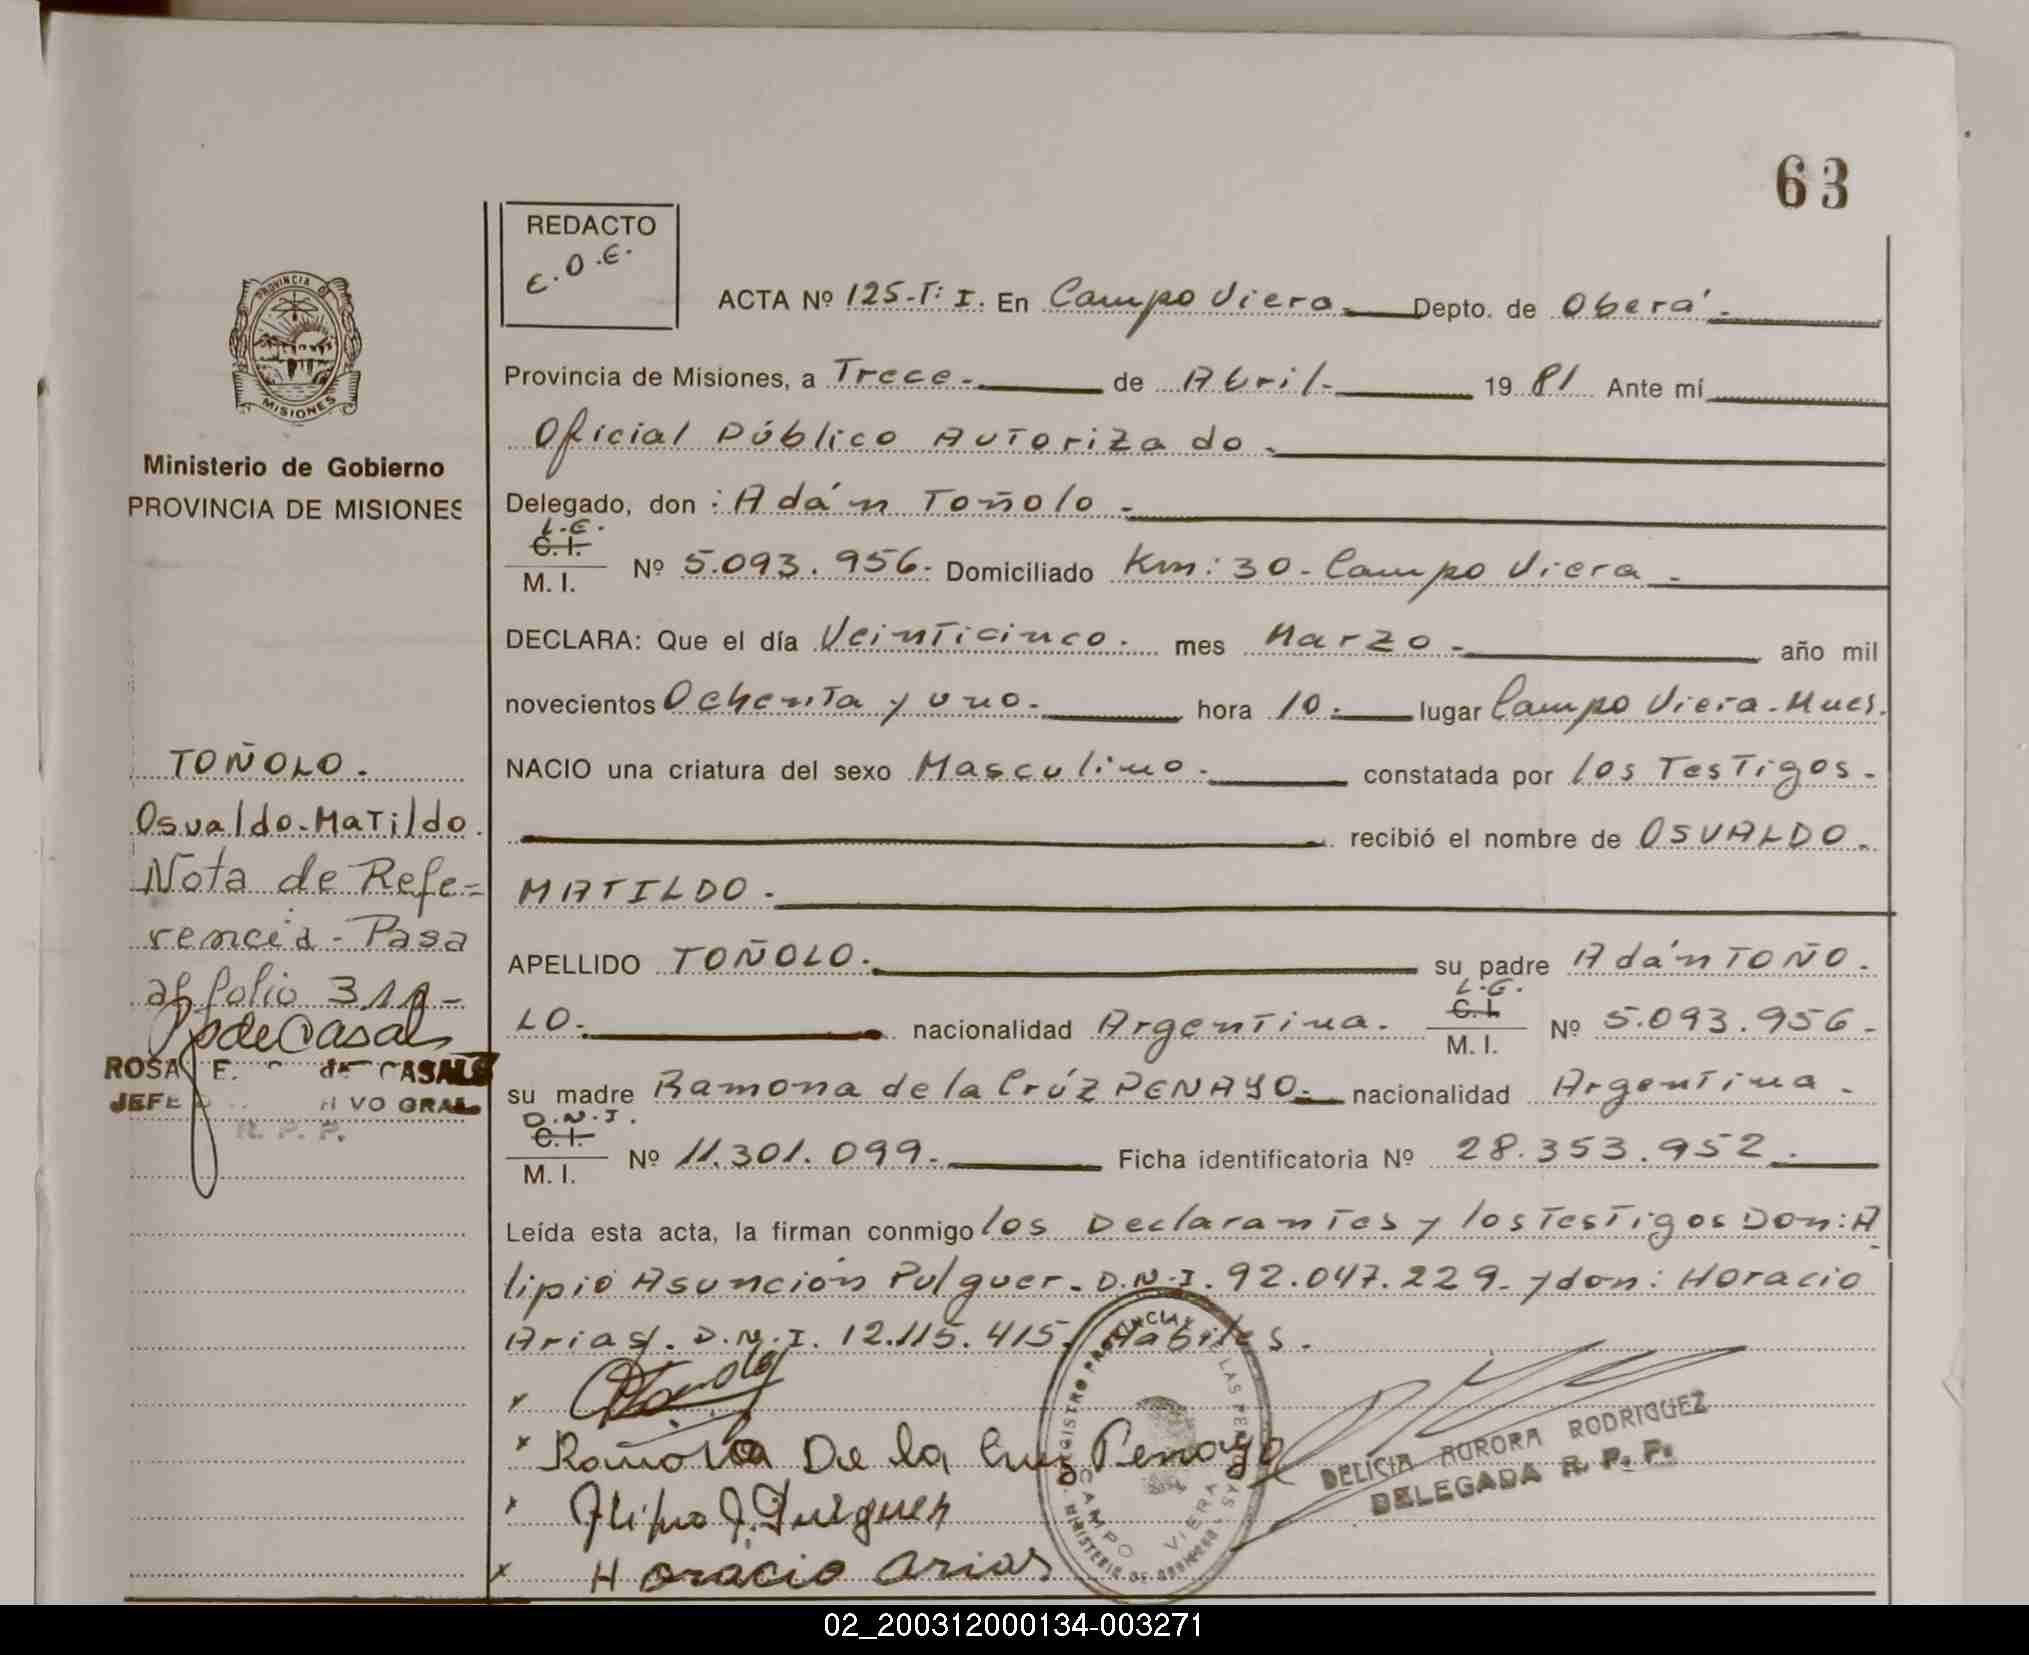 63
REDACTO
E.O.E.
ACTA Nº 125-T: I. En Campo Viera.- Depto. de Oberá.-
Provincia de Misiones, a Trece.- de Abril.- 19 81 Ante mí
Oficial Público Autorizado.-
Delegado, don: Adán Toñolo.-
L.E.
C.I.
M. I. Nº 5.093.956.- Domiciliado Km: 30-Campo Viera.-
DECLARA: Que el día Veinticinco. mes Marzo.- año mil
novecientos Ochenta y uno.- hora 10.- lugar Campo Viera-Mnes.
NACIO una criatura del sexo Masculino.- constatada por los Testigos.-
recibió el nombre de OSVALDO.-
MATILDO.-
APELLIDO TOÑOLO.- su padre Adán TOÑO.
LO.- nacionalidad Argentina. L.E. C.I. M. I. Nº 5.093.956.-
su madre Ramona de la Crúz PENAYO.- nacionalidad Argentina.-
D.N.I.
C.I.
M. I. Nº 11.301.099.- Ficha identificatoria Nº 28.353.952.-
Leída esta acta, la firman conmigo los Declarantes y los Testigos Don: A
lipio Asunción Pulguer. D.N.I. 92.047.229. y don: Horacio
Arias. D.N.I. 12.115.415. Habiles.
Ramona De la Cruz Penayo
Horacio Arias
DELICIA AURORA RODRIGUEZ
DELEGADA R. P. P.
REGISTRO PROVINCIAL DE LAS PERSONAS
CAMPO VIERA
MINISTERIO DE GOBIERNO
PROVINCIA DE
MISIONES
Ministerio de Gobierno
PROVINCIA DE MISIONES
TOÑOLO.
Osvaldo-Matildo.
Nota de Refe=
rencia - Pasa
al folio 311-
ROSA E. de CASALS
JEFE VO GRAL.
R. P. P.
02_200312000134-003271